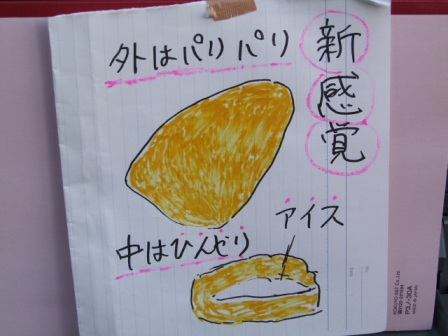 新感覚
外はパリパリ
中はひんどり
アイス